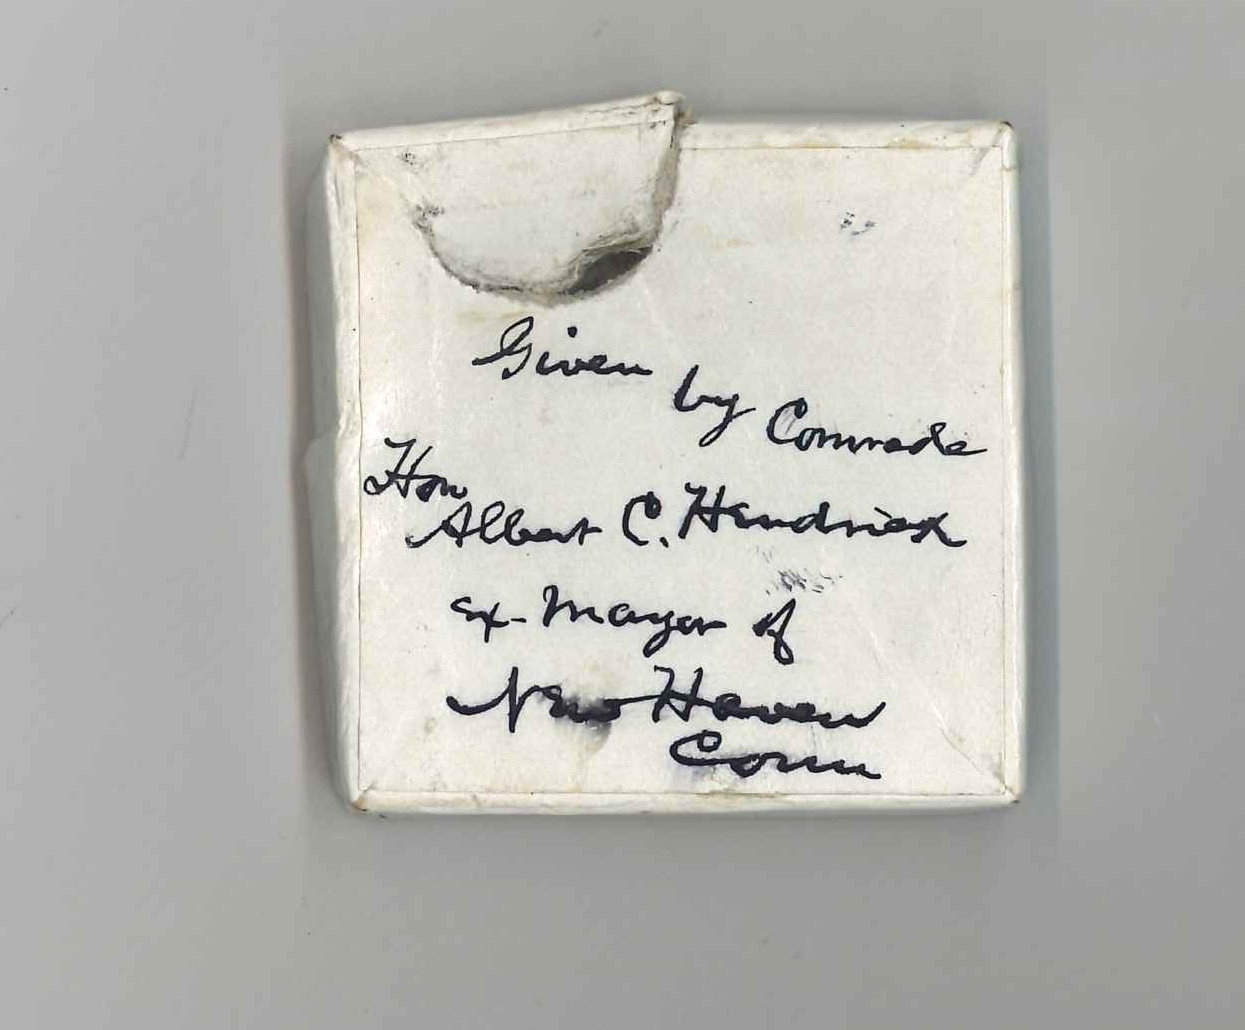 Given by Comrade
Hon Albert C. Hendrick
ex-Mayor of
New Haven
Conn